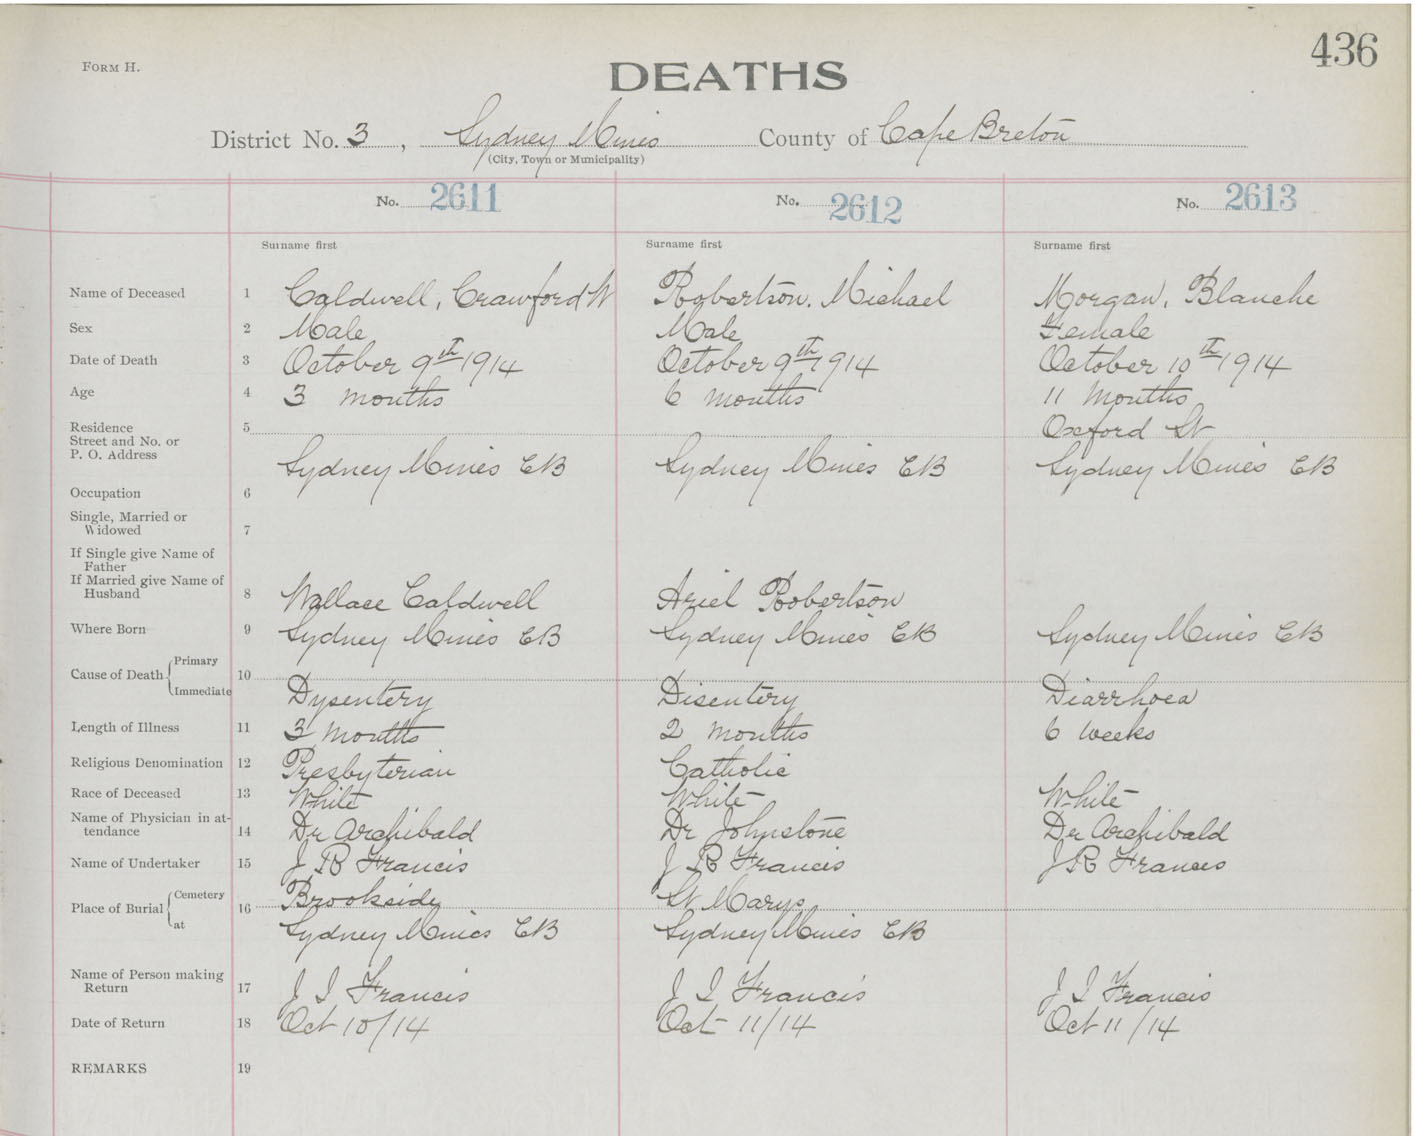 436
FORM H.
DEATHS
District No. 3, Sydney Mines County of Cape Breton
(City, Town or Municipality)
No. 2611 No. 2612 No. 2613
Surname first Surname first Surname first
Name of Deceased 1 Caldwell, Crawford W Robertson, Michael Morgan, Blanche
Sex 2 Male Male Female
Date of Death 3 October 9th 1914 October 9th 1914 October 10th 1914
Age 4 3 months 6 months 11 Months
Residence 5 Oxford St
Street and No. or
P. O. Address Sydney Mines CB Sydney Mines CB Sydney Mines CB
Occupation 6
Single, Married or
Widowed 7
If Single give Name of
Father
If Married give Name of
Husband 8 Wallace Caldwell Ariel Robertson
Where Born 9 Sydney Mines CB Sydney Mines CB Sydney Mines CB
Primary
Cause of Death 10
Immediate Dysentery Disentery Diarrhoea
Length of Illness 11 3 months 2 months 6 weeks
Religious Denomination 12 Presbyterian Catholic
Race of Deceased 13 White White White
Name of Physician in at-
tendance 14 Dr Archibald Dr Johnstone Dr Archibald
Name of Undertaker 15 J R Francis J R Francis J R Frances
Cemetery Brookside St Marys
Place of Burial 16
at Sydney Mines CB Sydney Mines CB
Name of Person making
Return 17 J I Francis J I Francis J I Francis
Date of Return 18 Oct 10/14 Oct 11/14 Oct 11/14
REMARKS 19